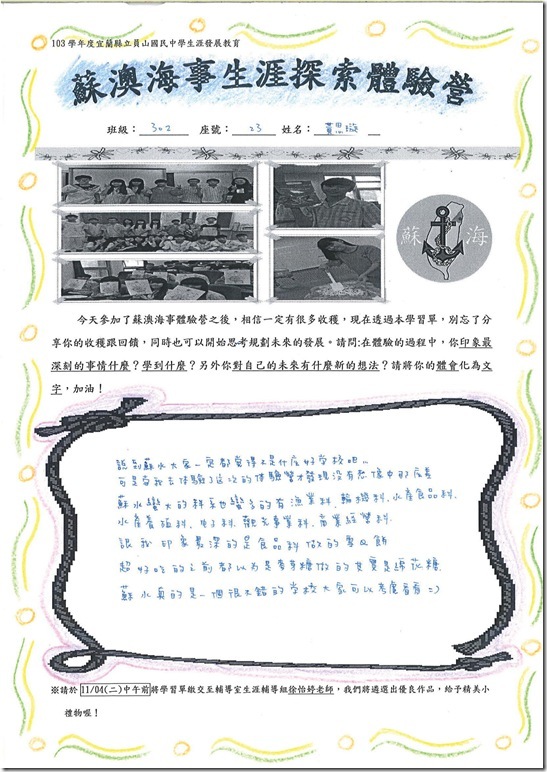 103 學年度宜蘭縣立員山國民中學生涯發展教育
蘇澳海事生涯探索體驗營
班級：302 座號：23 姓名：黃思璇
蘇 海
今天參加了蘇澳海事體驗營之後，相信一定有很多收穫，現在透過本學習單，別忘了分
享你的收穫跟回饋，同時也可以開始思考規劃未來的發展。請問:在體驗的過程中，你印象最
深刻的事情什麼？學到什麼？另外你對自己的未來有什麼新的想法？請將你的體會化為文
字，加油！
說到蘇水大家一定都覺得不是什麼好學校吧…
可是當我去体驗了這次的体驗營才發現沒有想像中那麼差
蘇水蠻大的科系也蠻多的有漁業科.輪機科.水產食品科.
水產養殖科.電子科.觀光事業科.商業經營科.
讓我印象最深的是食品科做的雪Q餅
超好吃的之前都以為是麥芽糖做的其實是棉花糖
蘇水真的是一個很不錯的學校大家可以考慮看看=)
※請於 11/04(二)中午前將學習單繳交至輔導室生涯輔導組徐怡婷老師，我們將遴選出優良作品，給予精美小
禮物喔！